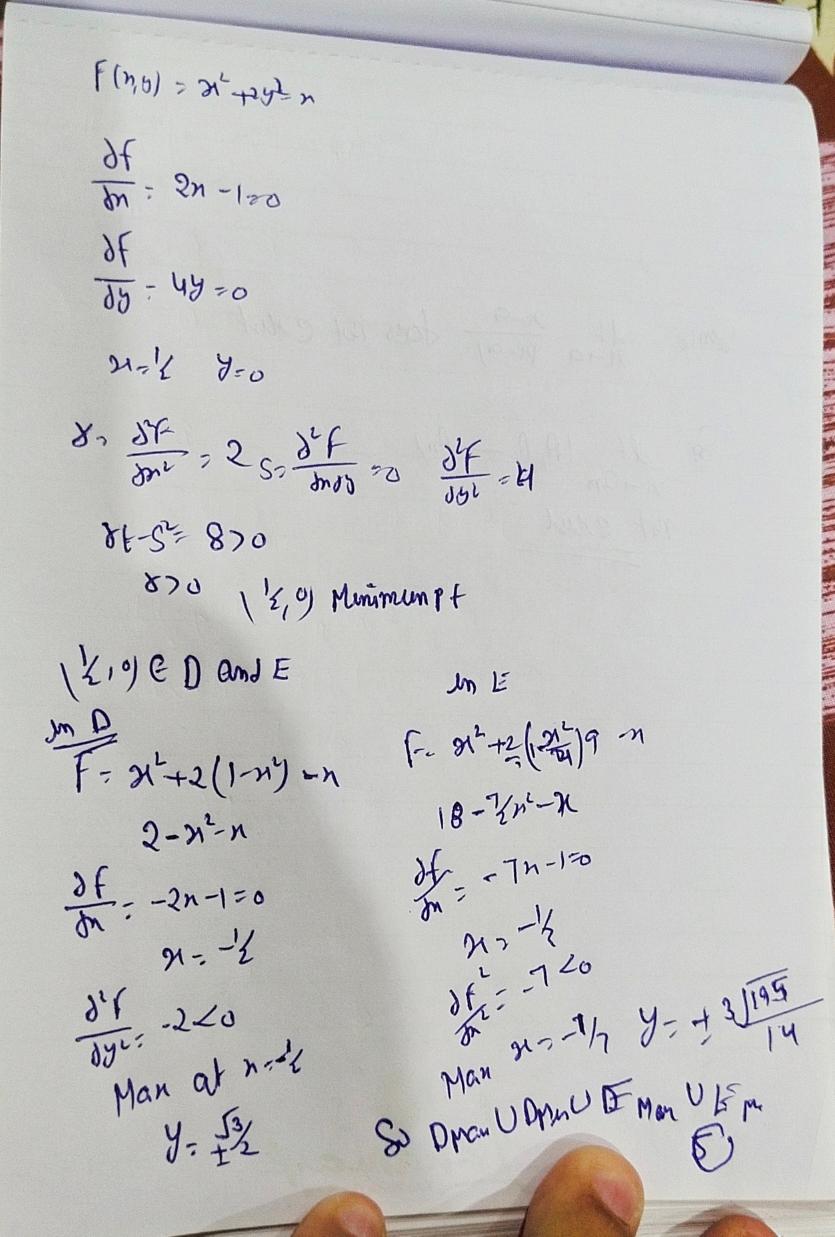 F(x,y) = x² + 2y² - x
∂f/∂x = 2x - 1 = 0
∂f/∂y = 4y = 0
x = 1/2 y = 0
r = ∂²F/∂x² = 2 S = ∂²F/∂x∂y = 0 ∂²F/∂y² = 4
rt - S² = 8 > 0
r > 0 (1/2, 0) Minimum pt
(1/2, 0) ∈ D and E
In D
F = x² + 2(1-x²) - x
2 - x² - x
∂F/∂x = -2x - 1 = 0
x = -1/2
∂²F/∂y² = -2 < 0
Max at x = -1/2
y = ±√3/2
In E
F = x² + 2(1 - x²/4)9 - x
18 - 7/2 x² - x
∂f/∂x = -7x - 1 = 0
∂f²/∂x² = -7 < 0
Max x = -1/7 y = ± 3√195/14
So Dmax U Dmin U E Max U E
5